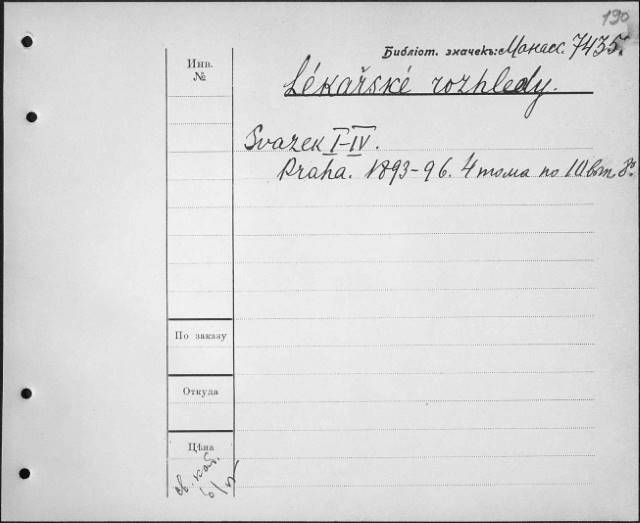 190
Библіот. значекъ: Манасс. 7435.
Инв.
№
Lékařské rozhledy.
Svazek I-IV.
Praha. 1893-96. 4 тома по 10 вып. 8º
По заказу
Откуда
Цѣна
св. каб.